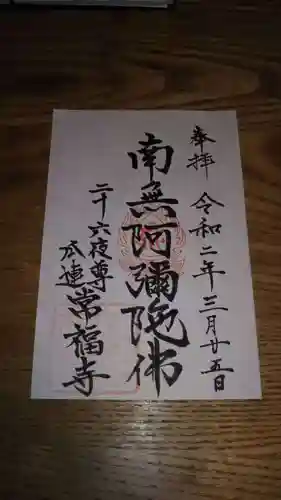 奉拝 令和二年三月廿五日
南無阿彌陀佛
二十六夜尊
木連
常福寺